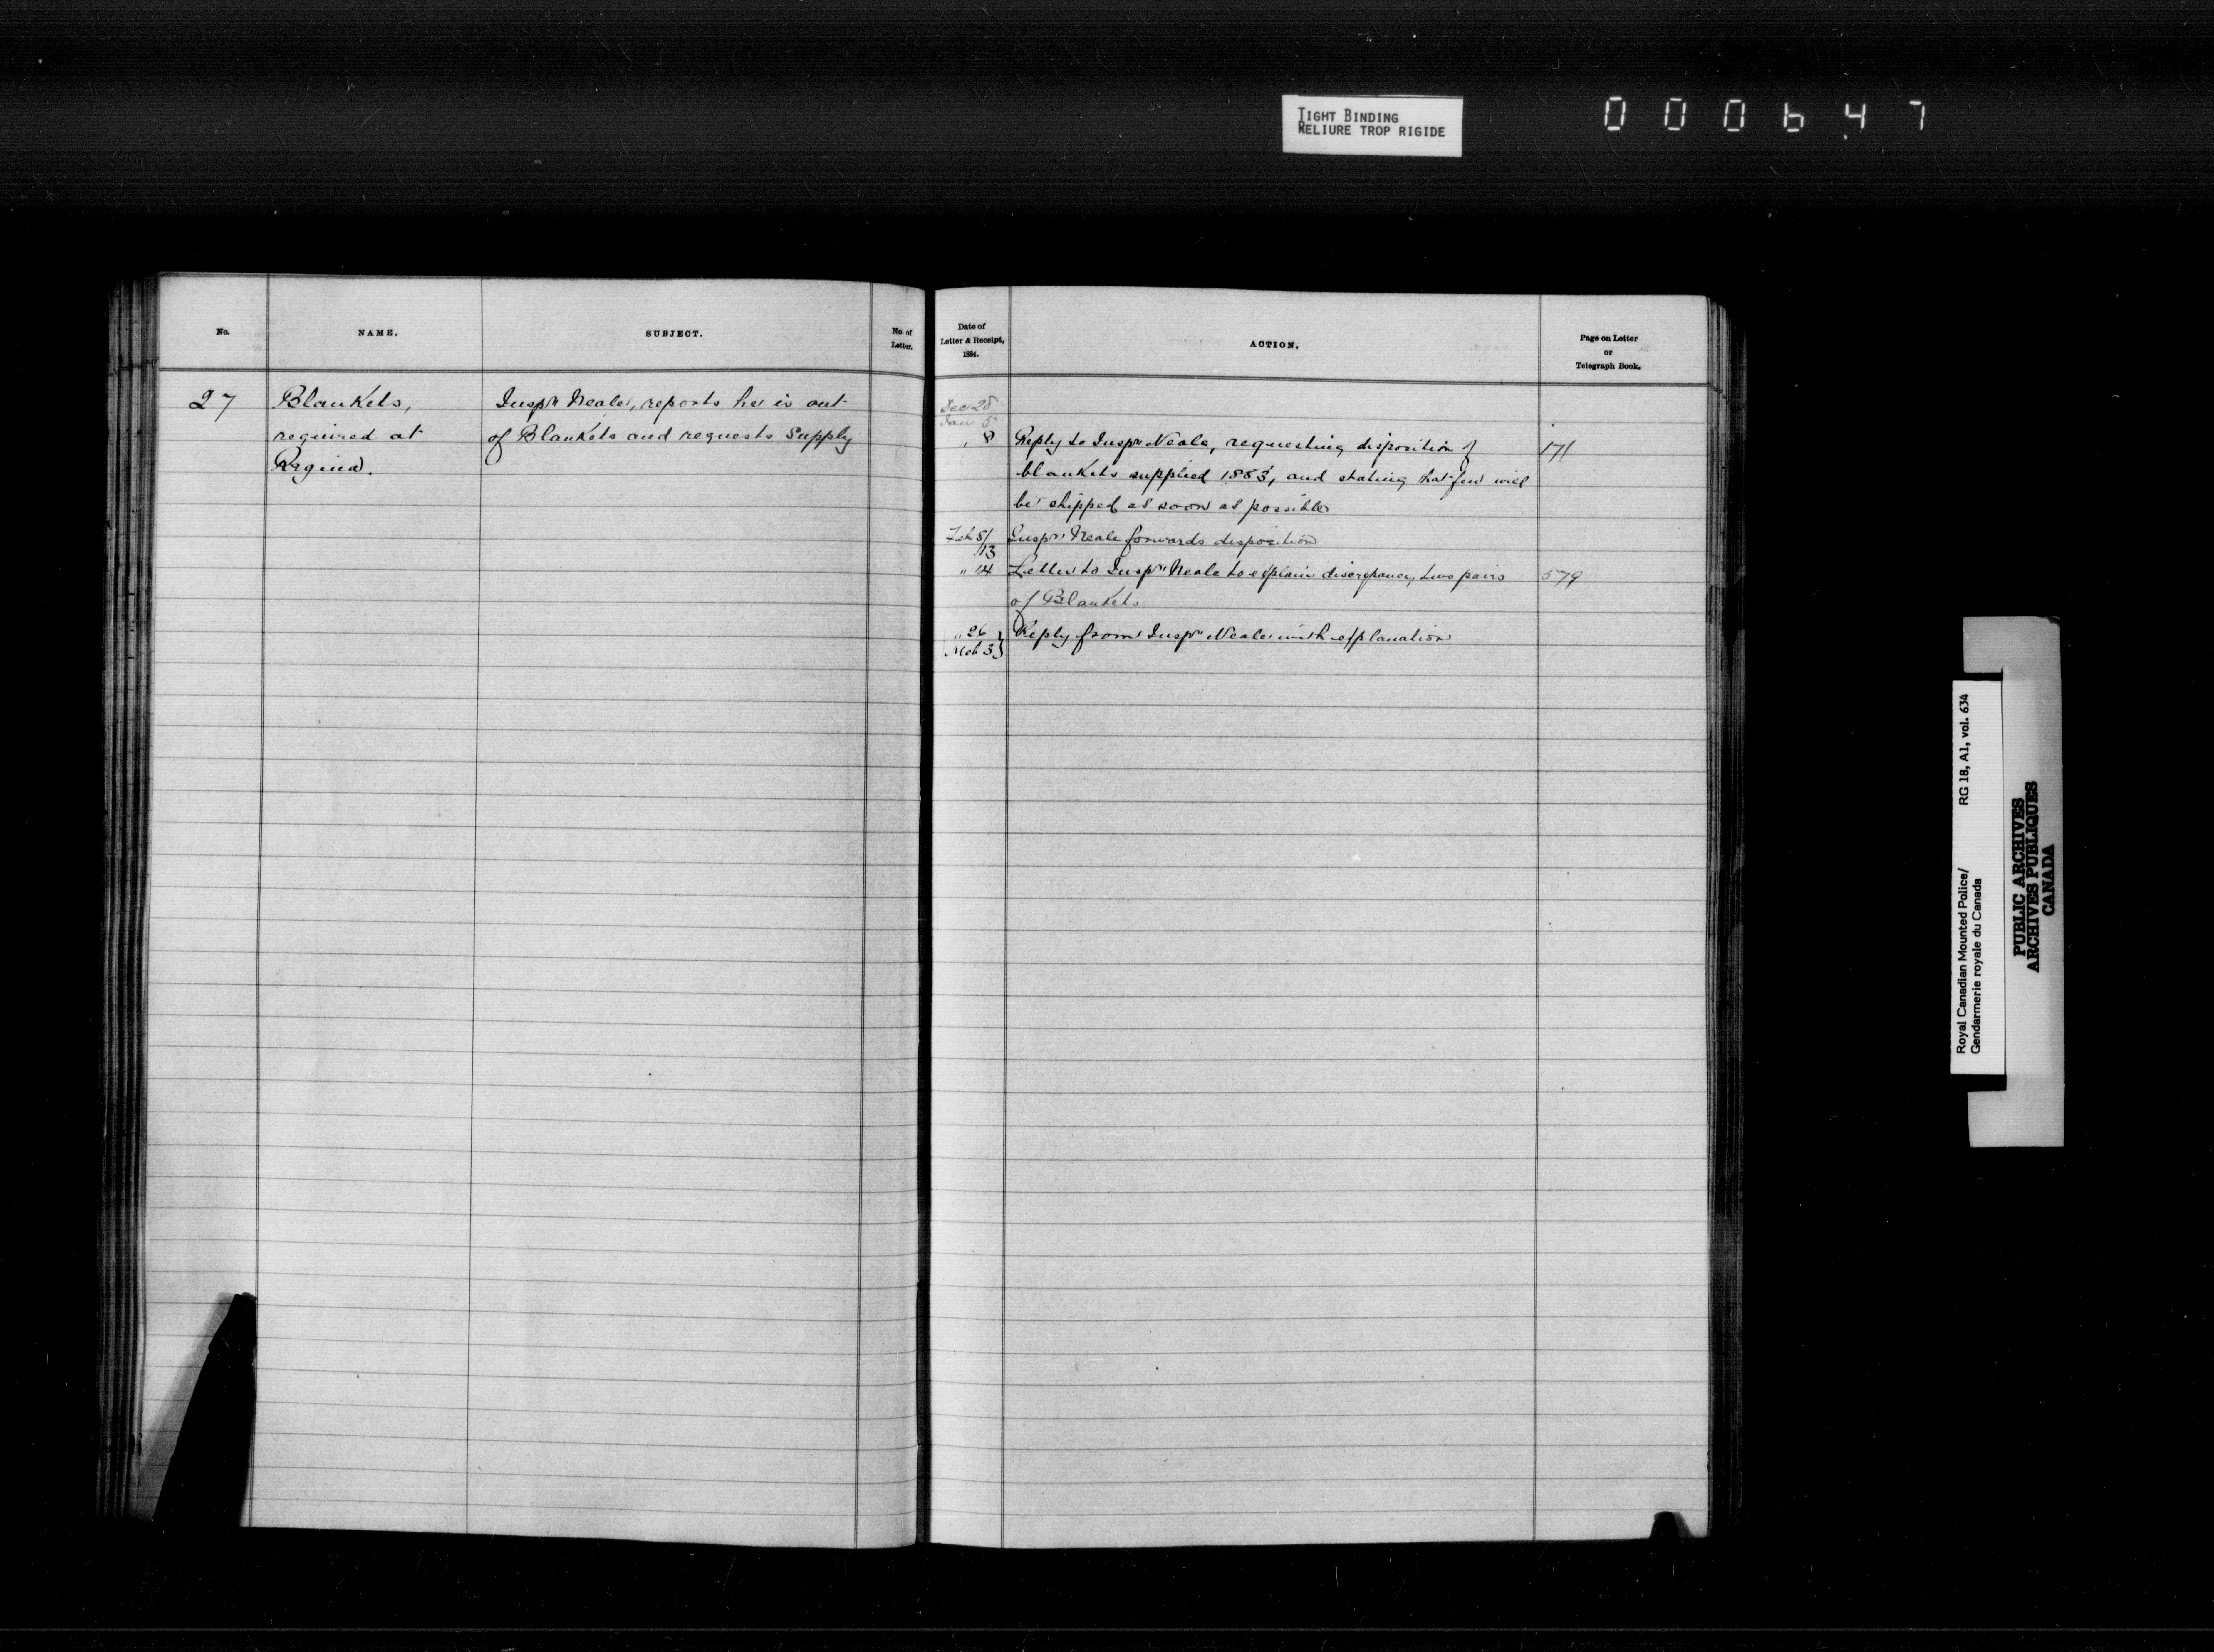 TIGHT BINDING
RELIURE TROP RIGIDE
000647
No.
NAME.
SUBJECT.
No. of
Letter.
27
Blankets,
required at
Regina.
Inspr Neale, reports he is out
of Blankets and requests Supply
Date of
Letter & Receipt,
1884.
ACTION.
Page on Letter
or
Telegraph Book.
Dec 28
Jan 5
" 8 Reply to Inspr Neale, requesting disposition of 171
blankets supplied 1883, and stating that few will
be shipped as soon as possible
Feb 8/ Inspr Neale forwards disposition
13
" 14 Letter to Inspr Neale to explain discrepancy, two pairs 579
of Blankets
" 26 } Reply from Inspr Neale with explanation
Mch 3 }
Royal Canadian Mounted Police/ RG 18, A1, vol. 634
Gendarmerie royale du Canada
PUBLIC ARCHIVES
ARCHIVES PUBLIQUES
CANADA